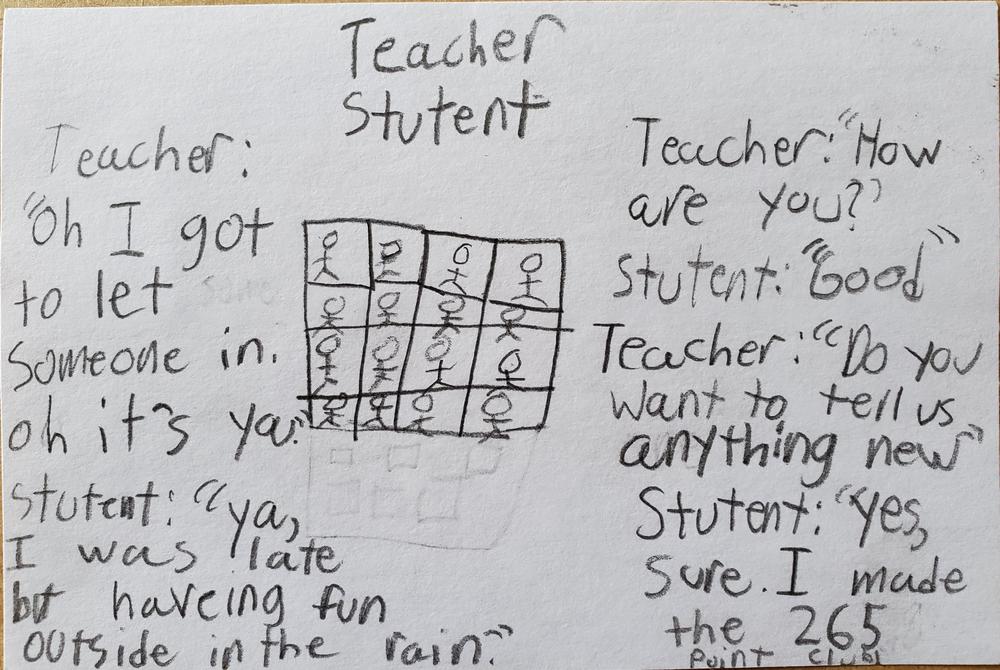 Teacher
Stutent
Teacher:
"Oh I got
to let
Someone in.
oh it's ya."
Stutent: "ya,
I was late
but haveing fun
outside in the rain."
Teacher: "How
are you?"
Stutent: "Good"
Teacher: "Do you
want to tell us
anything new"
Stutent: "yes,
sure. I made
the 265
Point club!